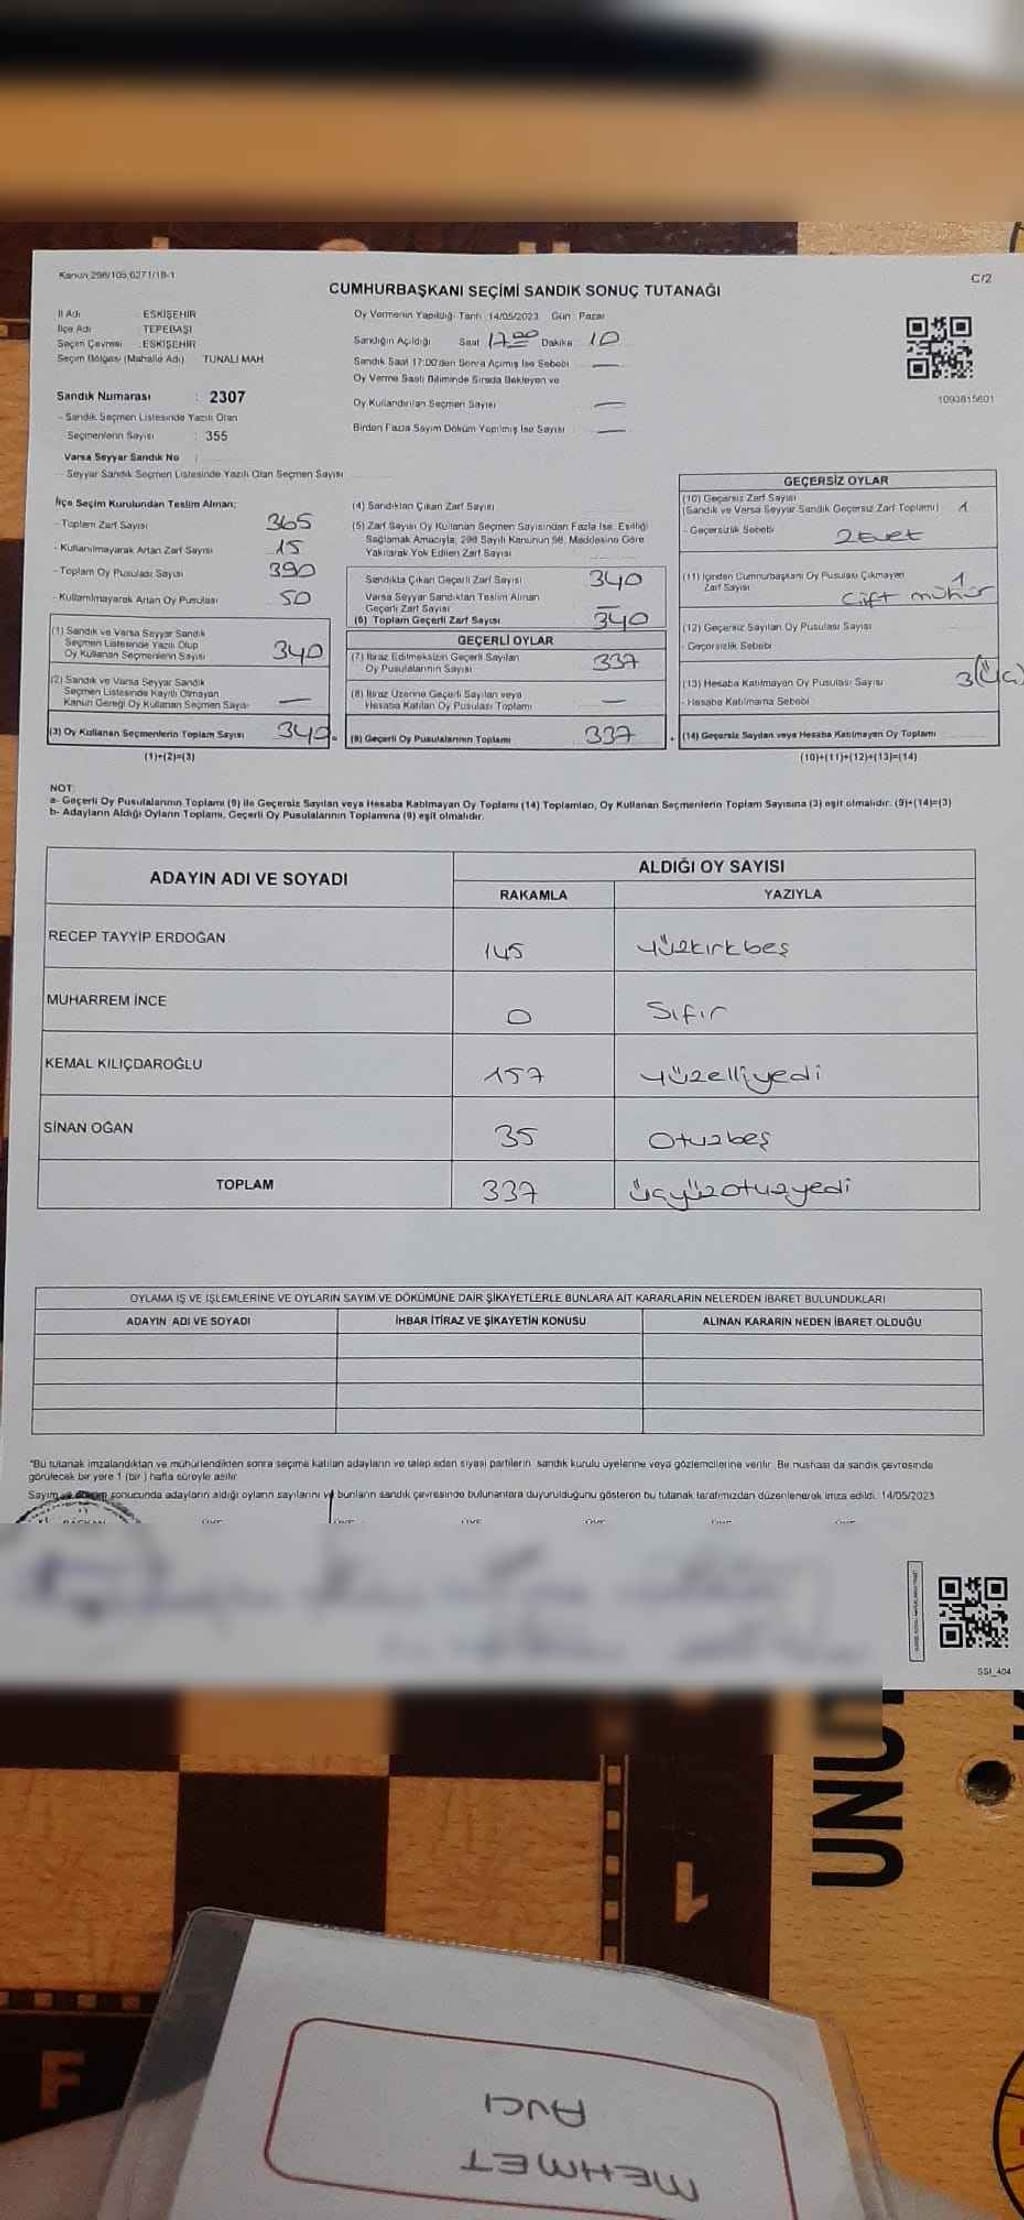 Kanun 298/105,6271/18-1
C/2
CUMHURBAŞKANI SEÇİMİ SANDIK SONUÇ TUTANAĞI
İl Adı ESKİŞEHİR
İlçe Adı TEPEBAŞI
Seçim Çevresi ESKİŞEHİR
Seçim Bölgesi (Mahalle Adı) TUNALI MAH
Sandık Numarası : 2307
- Sandık Seçmen Listesinde Yazılı Olan
Seçmenlerin Sayısı : 355
Varsa Seyyar Sandık No :
- Seyyar Sandık Seçmen Listesinde Yazılı Olan Seçmen Sayısı
Oy Vermenin Yapıldığı Tarih 14/05/2023 Gün : Pazar
Sandığın Açıldığı Saat 17:00 Dakika 10
Sandık Saat 17:00'den Sonra Açılmış İse Sebebi —
Oy Verme Saati Bitiminde Sırada Bekleyen ve
Oy Kullandırılan Seçmen Sayısı —
Birden Fazla Sayım Döküm Yapılmış İse Sayısı —
1093815601
İlçe Seçim Kurulundan Teslim Alınan;
- Toplam Zarf Sayısı 365
- Kullanılmayarak Artan Zarf Sayısı 15
- Toplam Oy Pusulası Sayısı 390
- Kullanılmayarak Artan Oy Pusulası 50
(1) Sandık ve Varsa Seyyar Sandık
Seçmen Listesinde Yazılı Olup
Oy Kullanan Seçmenlerin Sayısı 340
(2) Sandık ve Varsa Seyyar Sandık
Seçmen Listesinde Kayıtlı Olmayan
Kanun Gereği Oy Kullanan Seçmen Sayısı —
(3) Oy Kullanan Seçmenlerin Toplam Sayısı 340
(1)+(2)=(3)
(4) Sandıktan Çıkan Zarf Sayısı
(5) Zarf Sayısı Oy Kullanan Seçmen Sayısından Fazla İse, Eşitliği
Sağlamak Amacıyla, 298 Sayılı Kanunun 98. Maddesine Göre
Yakılarak Yok Edilen Zarf Sayısı
Sandıkta Çıkan Geçerli Zarf Sayısı 340
Varsa Seyyar Sandıktan Teslim Alınan
Geçerli Zarf Sayısı —
(6) Toplam Geçerli Zarf Sayısı 340
GEÇERLİ OYLAR
(7) İtiraz Edilmeksizin Geçerli Sayılan
Oy Pusulalarının Sayısı 337
(8) İtiraz Üzerine Geçerli Sayılan veya
Hesaba Katılan Oy Pusulası Toplamı —
(9) Geçerli Oy Pusulalarının Toplamı 337
GEÇERSİZ OYLAR
(10) Geçersiz Zarf Sayısı
(Sandık ve Varsa Seyyar Sandık Geçersiz Zarf Toplamı) 1
- Geçersizlik Sebebi 2 Evet
(11) İçinden Cumhurbaşkanı Oy Pusulası Çıkmayan
Zarf Sayısı 1
Çift mühür
(12) Geçersiz Sayılan Oy Pusulası Sayısı
- Geçersizlik Sebebi
(13) Hesaba Katılmayan Oy Pusulası Sayısı 3(üç)
- Hesaba Katılmama Sebebi
(14) Geçersiz Sayılan veya Hesaba Katılmayan Oy Toplamı
(10)+(11)+(12)+(13)=(14)
NOT:
a- Geçerli Oy Pusulalarının Toplamı (9) ile Geçersiz Sayılan veya Hesaba Katılmayan Oy Toplamı (14) Toplamları, Oy Kullanan Seçmenlerin Toplam Sayısına (3) eşit olmalıdır. (9)+(14)=(3)
b- Adayların Aldığı Oyların Toplamı, Geçerli Oy Pusulalarının Toplamına (9) eşit olmalıdır.
ADAYIN ADI VE SOYADI
ALDIĞI OY SAYISI
RAKAMLA YAZIYLA
RECEP TAYYİP ERDOĞAN 145 Yüzkırkbeş
MUHARREM İNCE 0 Sıfır
KEMAL KILIÇDAROĞLU 157 Yüzelliyedi
SİNAN OĞAN 35 Otuzbeş
TOPLAM 337 üçyüzotuzyedi
OYLAMA İŞ VE İŞLEMLERİNE VE OYLARIN SAYIM VE DÖKÜMÜNE DAİR ŞİKAYETLERLE BUNLARA AİT KARARLARIN NELERDEN İBARET BULUNDUKLARI
ADAYIN ADI VE SOYADI İHBAR İTİRAZ VE ŞİKAYETİN KONUSU ALINAN KARARIN NEDEN İBARET OLDUĞU
"Bu tutanak imzalandıktan ve mühürlendikten sonra seçime katılan adayların ve talep eden siyasi partilerin sandık kurulu üyelerine veya gözlemcilerine verilir. Bir nüshası da sandık çevresinde
görülecek bir yere 1 (bir) hafta süreyle asılır.
Sayım ve döküm sonucunda adayların aldığı oyların sayılarını ve bunların sandık çevresinde bulunanlara duyurulduğunu gösteren bu tutanak tarafımızdan düzenlenerek imza edildi. 14/05/2023
SSI_404
UNU
1
F
MEHMET
AVCI